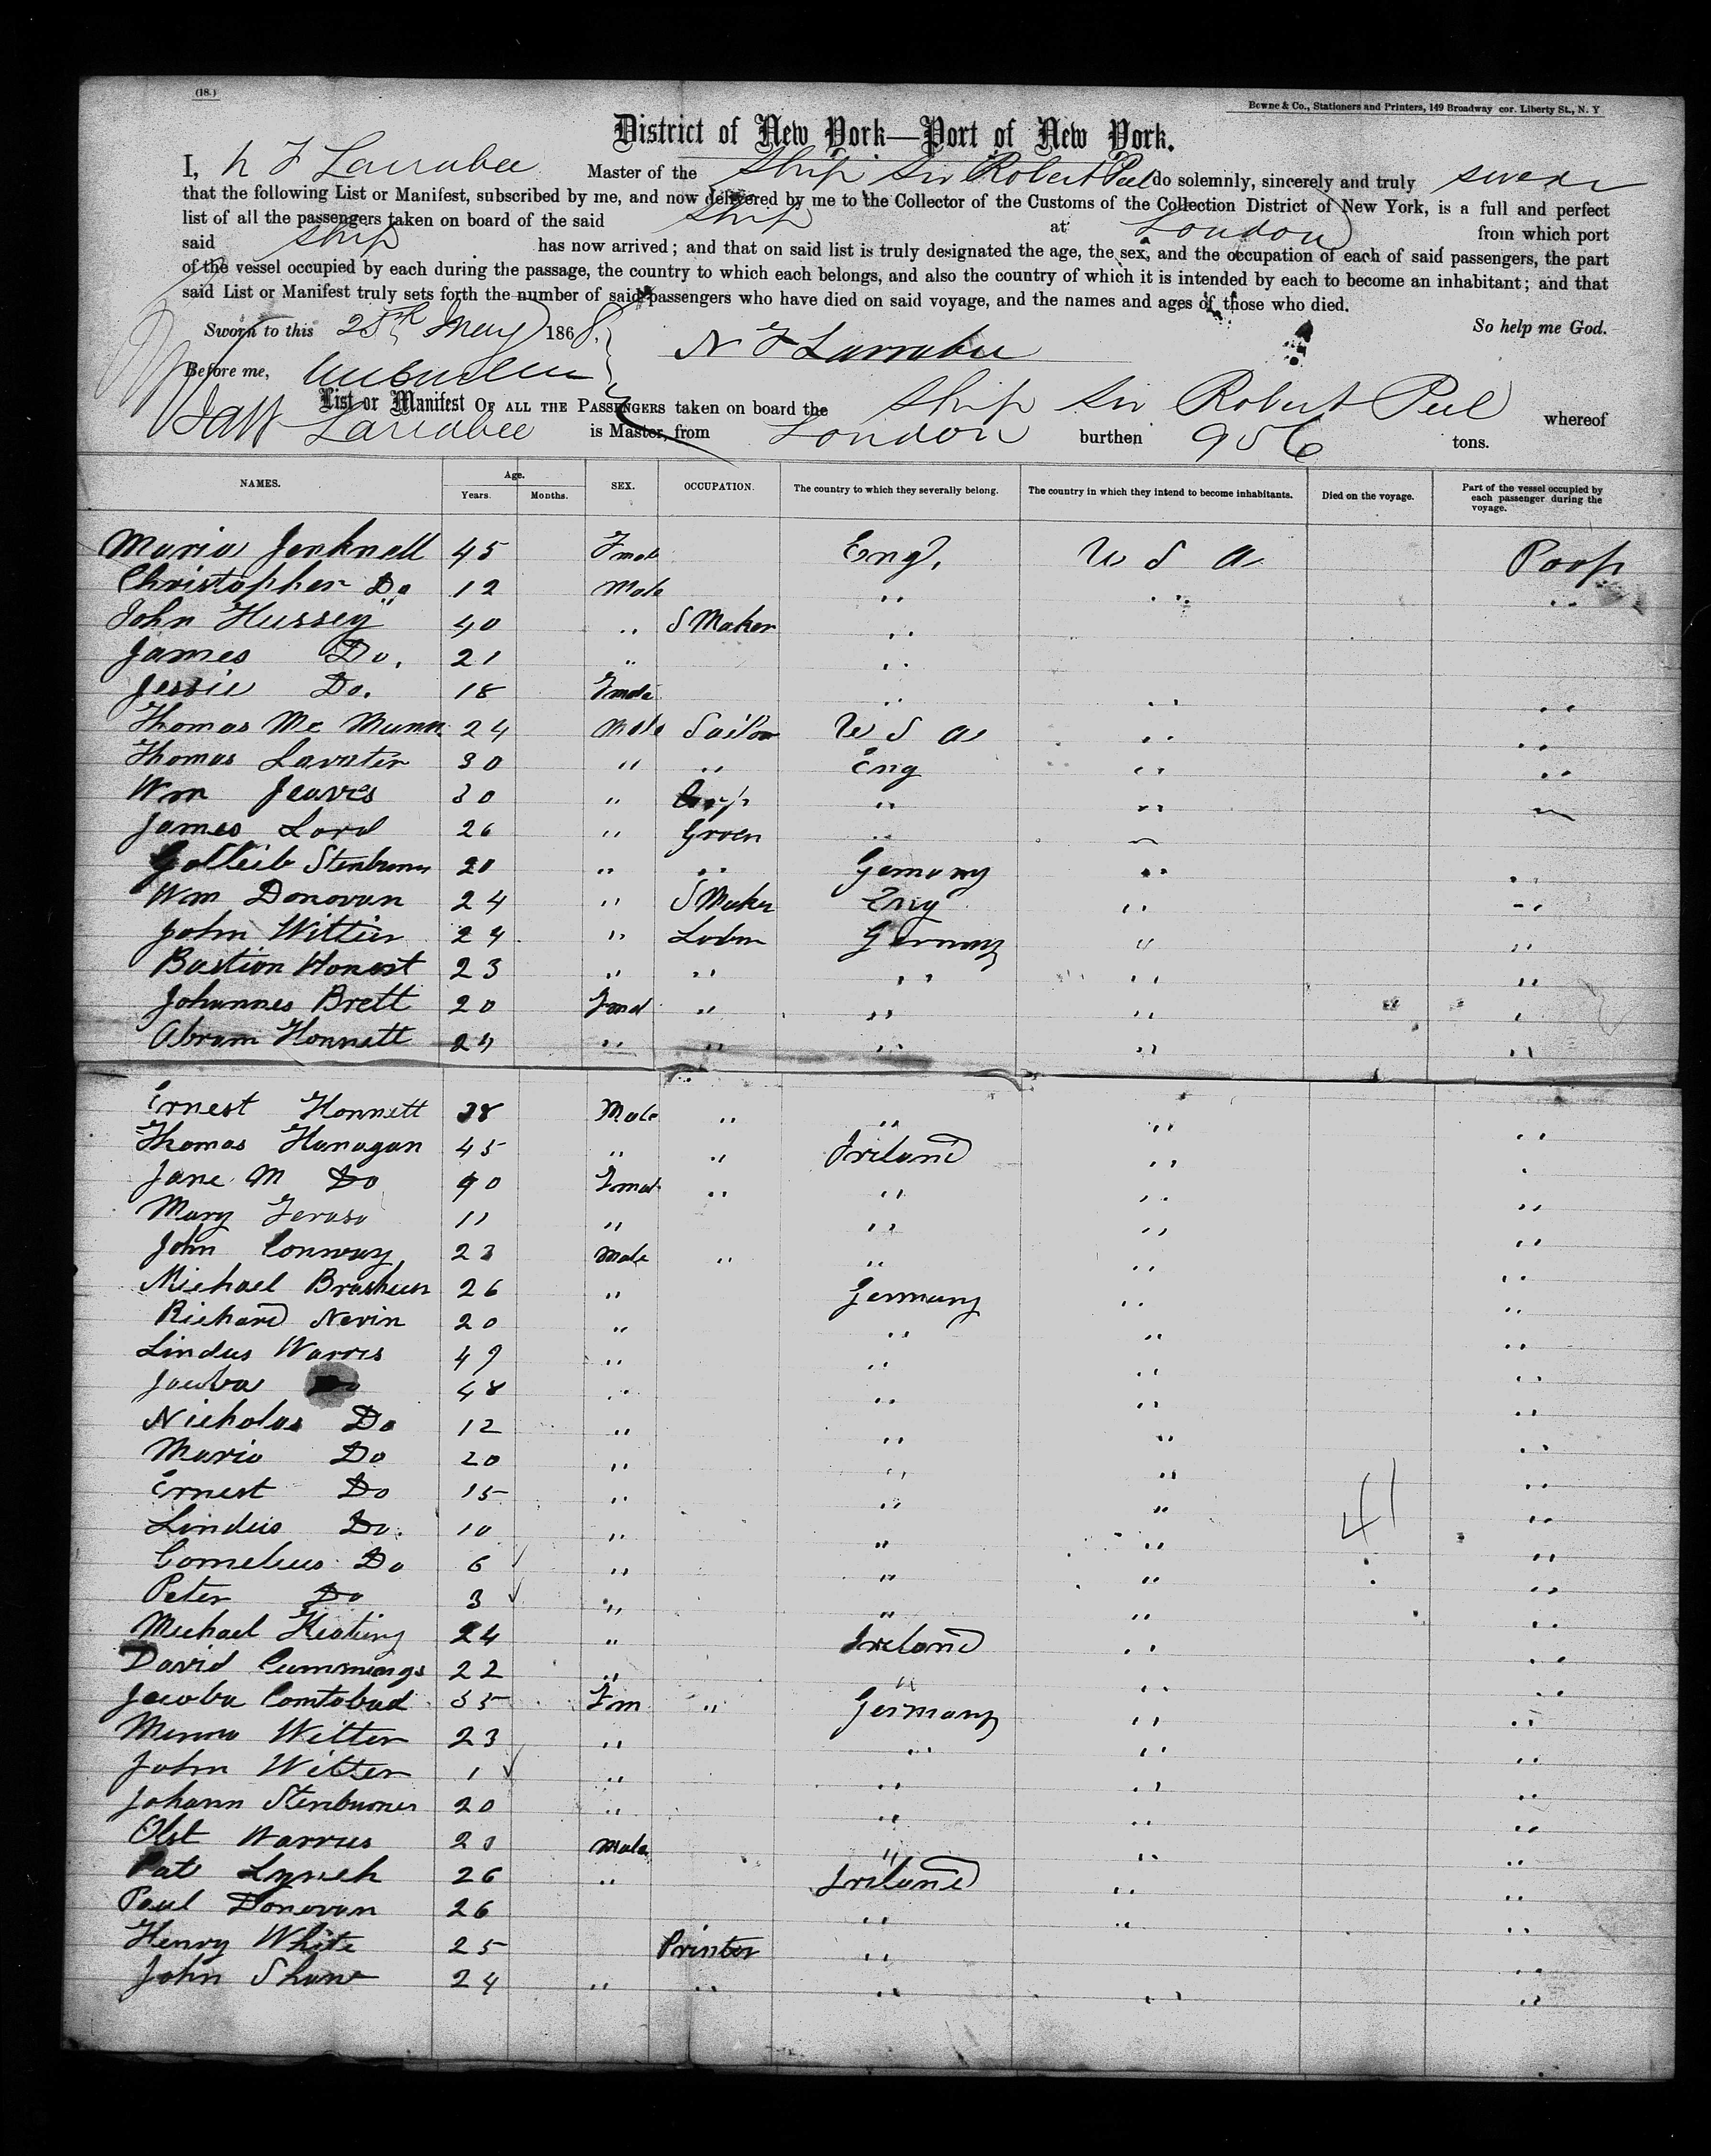 (18.)
Bowne & Co., Stationers and Printers, 149 Broadway cor. Liberty St., N. Y
District of New York—Port of New York.
I, N F Larrabee Master of the Ship Sir Robert Peel do solemnly, sincerely and truly swear
that the following List or Manifest, subscribed by me, and now delivered by me to the Collector of the Customs of the Collection District of New York, is a full and perfect
list of all the passengers taken on board of the said Ship at London from which port
said Ship has now arrived; and that on said list is truly designated the age, the sex, and the occupation of each of said passengers, the part
of the vessel occupied by each during the passage, the country to which each belongs, and also the country of which it is intended by each to become an inhabitant; and that
said List or Manifest truly sets forth the number of said passengers who have died on said voyage, and the names and ages of those who died.
Sworn to this 25th May 1868. So help me God.
N F Larrabee
Before me,
List or Manifest OF ALL THE PASSENGERS taken on board the Ship Sir Robert Peel whereof
Larrabee is Master, from London burthen 956 tons.
NAMES. Age. Years. Months. SEX. OCCUPATION. The country to which they severally belong. The country in which they intend to become inhabitants. Died on the voyage. Part of the vessel occupied by each passenger during the voyage.
Maria Jenknell 45 Fmal Eng. U S A Poop
Christopher Do 12 Male " " "
John Hussey 40 " S Maker "
James Do. 21 " "
Jessie Do. 18 Fmale " " "
Thomas Mc Munn 24 Male Sailor U S A " "
Thomas Lavater 30 " " Eng " "
Wm Jeaves 30 " Carp " " "
James Lord 26 " Grocn " "
Gottleib Stenburner 20 " " Germany " "
Wm Donovan 24 " S Maker Eng " "
John Witter 24 " Labr Germany " "
Bastion Honest 23 " " " " "
Johannes Brett 20 Fmal " " " "
Abram Honnett 24 " " " " "
Ernest Honnett 28 Male " " " "
Thomas Hanagan 45 " " Ireland " "
Jane M Do 40 Fmal " " " "
Mary Terasa 11 " " " "
John Conway 23 Male " " " "
Michael 26 " Germany " "
Richard Nevin 20 " " " "
Lindus Warris 49 " " " "
Jacoba Do 48 " " " "
Nicholas Do 12 " " " "
Maria Do 20 " " " "
Ernest Do 15 " " " "
Lindus Do. 10 " " " 41 "
Cornelius Do 6 " " " "
Peter Do 3 " " " "
Michael Keating 24 " Ireland " "
David Cummings 22 " " " "
Jacoba Comtobad 35 Fm " Germany " "
Menno Witter 23 " " " "
John Witter 1 " " " "
Johann Stenburner 20 " " " "
Olst Warrus 20 Male " " "
Pat Lynch 26 " Ireland " "
Paul Donovan 26 " " "
Henry White 25 Printer " "
John Shaw 24 " " " " "